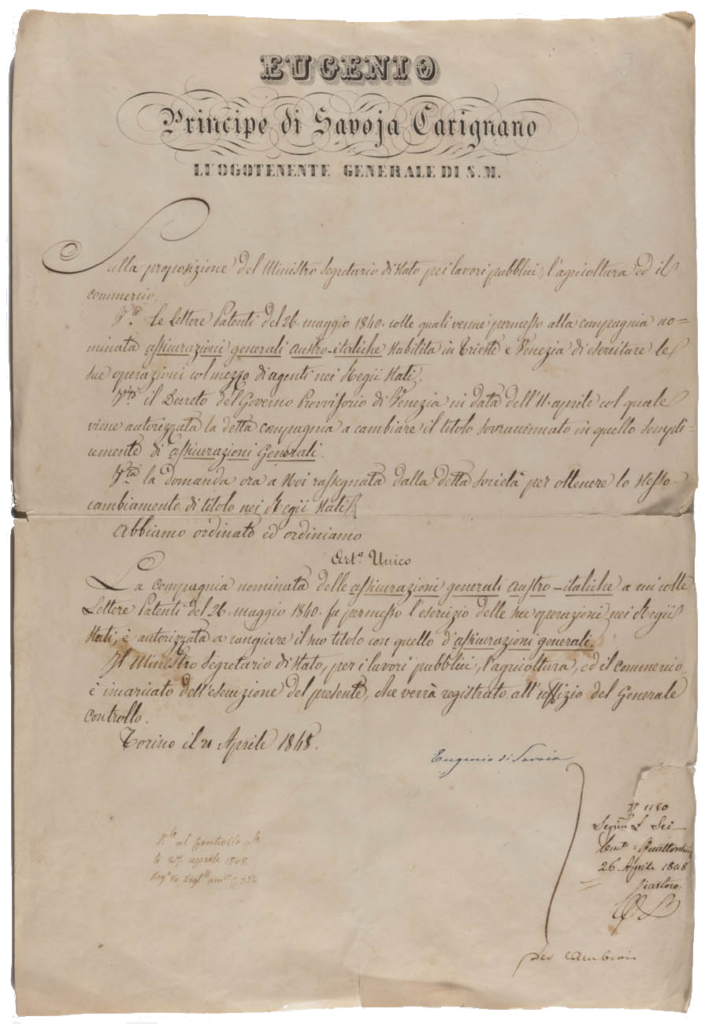 EUGENIO
Principe di Savoja Carignano
LUOGOTENENTE GENERALE DI S.M.
Sulla proposizione del Ministro Segretario di Stato pei lavori pubblici, l'agricoltura ed il
commercio.
V.te le Lettere Patenti del 26 maggio 1840 colle quali venne permesso alla compagnia no=
minata assicurazioni generali austro-italiche stabilita in Trieste e Venezia di esercitare le
sue operazioni col mezzo di agenti nei Regii Stati.
V.to il Decreto del Governo Provvisorio di Venezia in data dell'11 aprile col quale
viene autorizzata la detta compagnia a cambiare il titolo sovranominato in quello semplic
cemente di assicurazioni Generali.
V.ta la domanda ora a Noi rassegnata dalla detta società per ottenere lo stesso
cambiamento di titolo nei Regii Stati
Abbiamo ordinato ed ordiniamo
Art.o Unico
La compagnia nominata delle assicurazioni generali austro-italiche a cui colle
Lettere Patenti del 26 maggio 1840 fu permesso l'esercizio delle sue operazioni nei Regii
Stati, è autorizzata a cangiare il suo titolo con quello d'assicurazioni generali.
Il Ministro Segretario di Stato, per i lavori pubblici, l'agricoltura, ed il commercio
è incaricato dell'esecuzione del presente, che verrà registrato all'uffizio del Generale
controllo.
Torino il 21 Aprile 1848.
Eugenio di Savoia
N 1180
26 Aprile 1848
al Controllo
li 27 aprile 1848
per